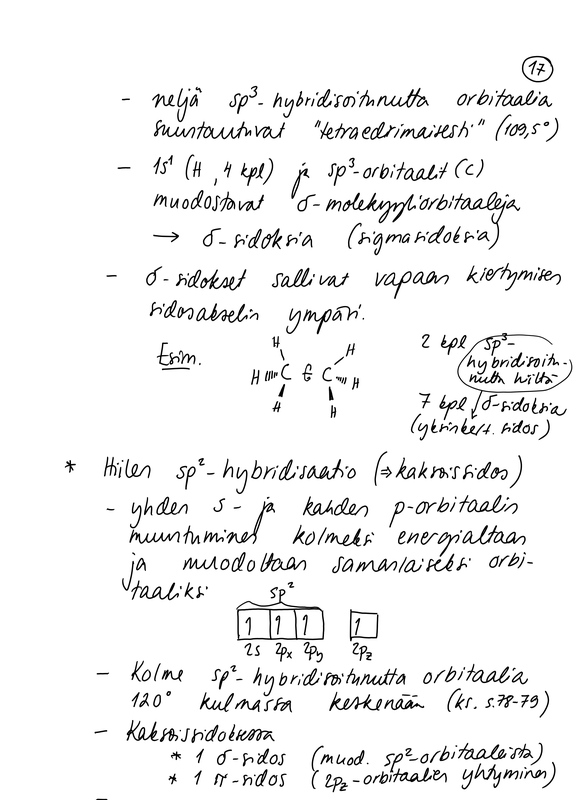 17
- neljä sp³-hybridisoitunutta orbitaalia
suuntautuvat "tetraedrimaisesti" (109,5°)
- 1s¹ (H, 4 kpl) ja sp³-orbitaalit (C)
muodostavat σ-molekyyliorbitaaleja
→ σ-sidoksia (sigmasidoksia)
- σ-sidokset sallivat vapaan kiertymisen
sidosakselin ympäri.
Esim.
H H
H C C H
H H
2 kpl sp³-
hybridisoitu-
nutta hiiltä
7 kpl σ-sidoksia
(yksinkert. sidos)
* Hiilen sp²-hybridisaatio (⇒ kaksoissidos)
- yhden s- ja kahden p-orbitaalin
muuntuminen kolmeksi energialtaan
ja muodoltaan samanlaiseksi orbi-
taaliksi
sp²
1 1 1 1
2s 2px 2py 2pz
- Kolme sp²-hybridisoitunutta orbitaalia
120° kulmassa keskenään (ks. s.78-79)
- Kaksoissidoksessa
* 1 σ-sidos (muod. sp²-orbitaaleista)
* 1 π-sidos (2pz-orbitaalien yhtyminen)